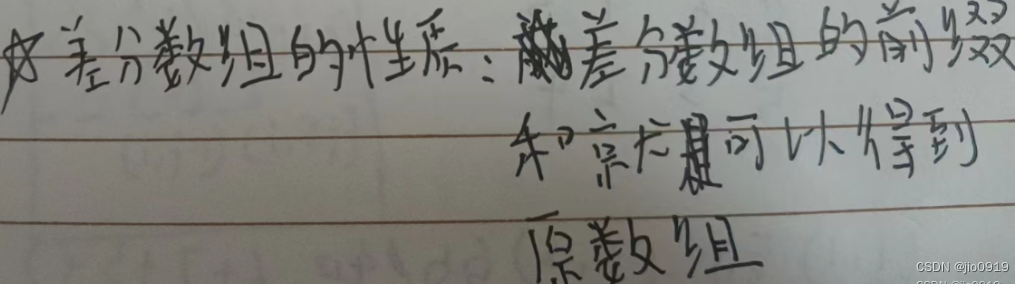 ☆差分数组的性质：差分数组的前缀
和就是可以得到
原数组
CSDN @jio0919